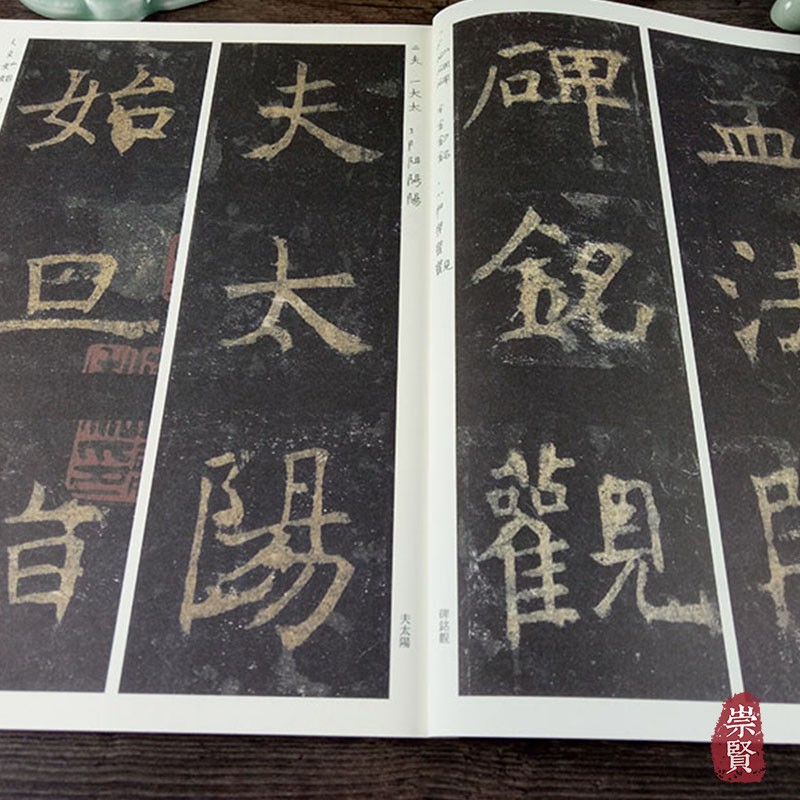 孟法
碑銘觀
碑銘觀
夫太陽
夫太陽
始旦
崇賢